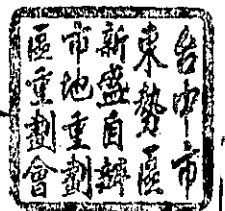 台中市
東勢區
新盛自辦
市地重劃
區重劃會